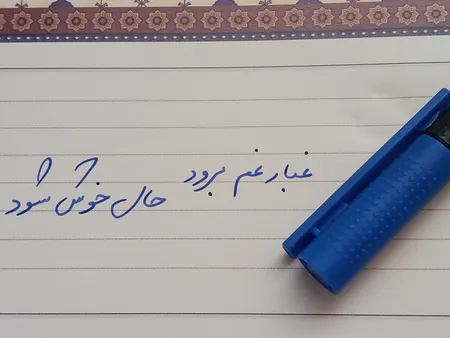 غبار غم برود حال خوش شود